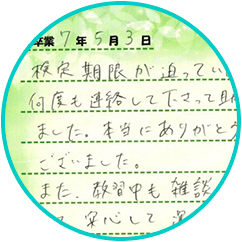 卒業 7 年 5 月 3 日
検定期限が迫ってい
何度も連絡して下さって
ました。本当にありがとう
ございました。
また、教習中も雑談
安心して